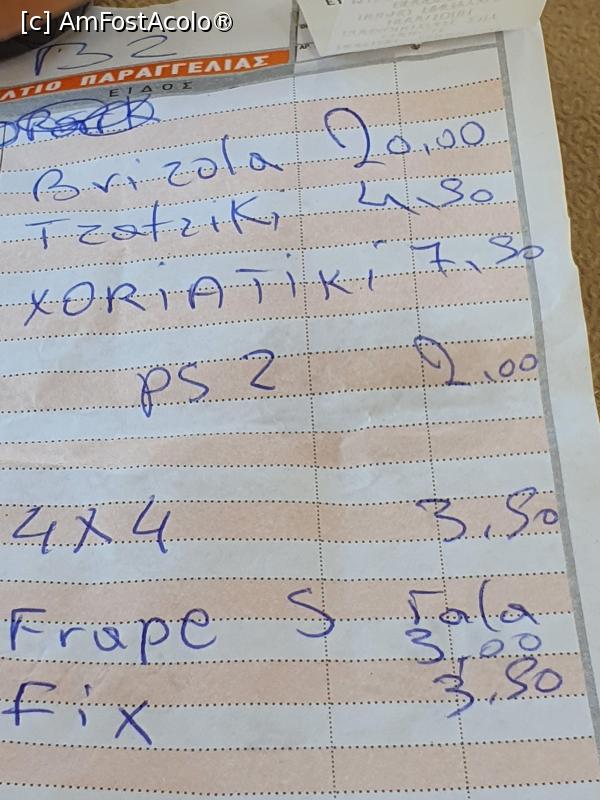 [c] AmFostAcolo®
B2
ΛΤΙΟ ΠΑΡΑΓΓΕΛΙΑΣ
ΕΙΔΟΣ
Brizola 20.00
Tzatziki 4.50
XORiATiKi 7.50
ps 2 2.00
4x4 3.50
Frape S Γala
3.00
Fix 3.50